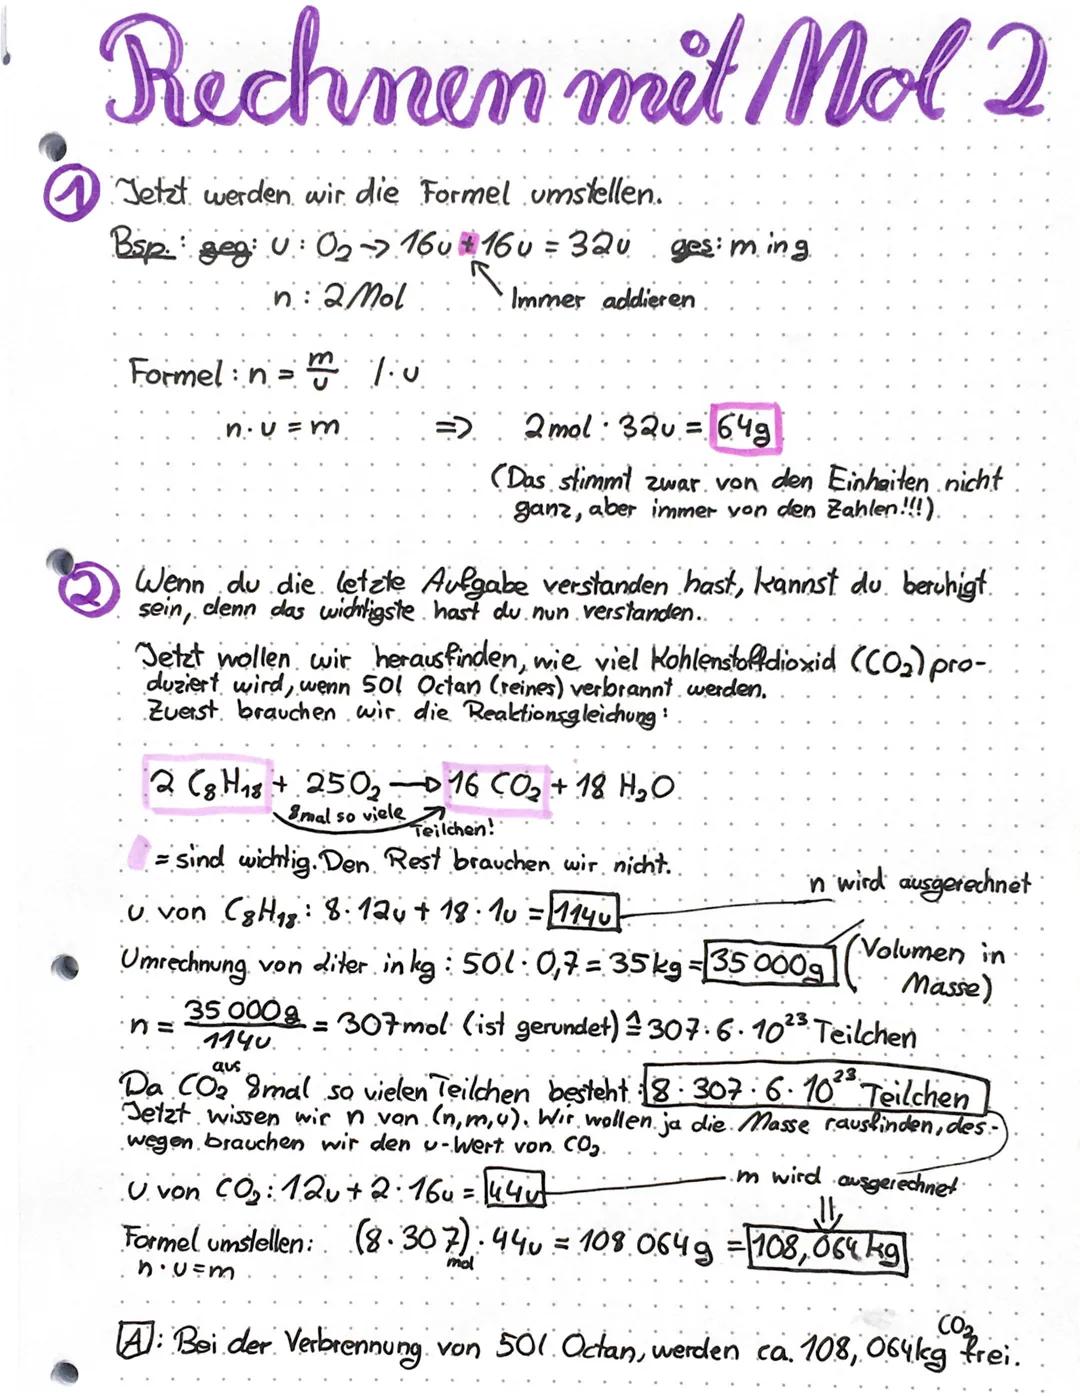 Rechnen mit Mol 2
① Jetzt werden wir die Formel umstellen.
Bsp.: geg: u: O₂ → 16u + 16u = 32u ges: m in g
n: 2Mol Immer addieren
Formel: n = m/u /·u
n·u = m => 2mol · 32u = 64g
(Das stimmt zwar von den Einheiten nicht
ganz, aber immer von den Zahlen!!!)
② Wenn du die letzte Aufgabe verstanden hast, kannst du beruhigt
sein, denn das wichtigste hast du nun verstanden.
Jetzt wollen wir herausfinden, wie viel Kohlenstoffdioxid (CO₂) pro-
duziert wird, wenn 50l Octan (reines) verbrannt werden.
Zuerst brauchen wir die Reaktionsgleichung:
2 C₈H₁₈ + 25O₂ → 16 CO₂ + 18 H₂O
8mal so viele Teilchen!
= sind wichtig. Den Rest brauchen wir nicht.
n wird ausgerechnet
u von C₈H₁₈: 8·12u + 18·1u = 114u
Umrechnung von Liter in kg: 50l · 0,7 = 35kg = 35 000g (Volumen in
Masse)
n = 35 000g/114u = 307mol (ist gerundet) ≙ 307·6·10²³ Teilchen
Da CO₂ aus 8mal so vielen Teilchen besteht: 8·307·6·10²³ Teilchen
Jetzt wissen wir n von (n,m,u). Wir wollen ja die Masse rausfinden, des-
wegen brauchen wir den u-Wert von CO₂
u von CO₂: 12u + 2·16u = 44u m wird ausgerechnet
Formel umstellen: (8·307)mol · 44u = 108 064g = 108,064 kg
n·u=m
A: Bei der Verbrennung von 50l Octan, werden ca. 108,064kg CO₂ frei.